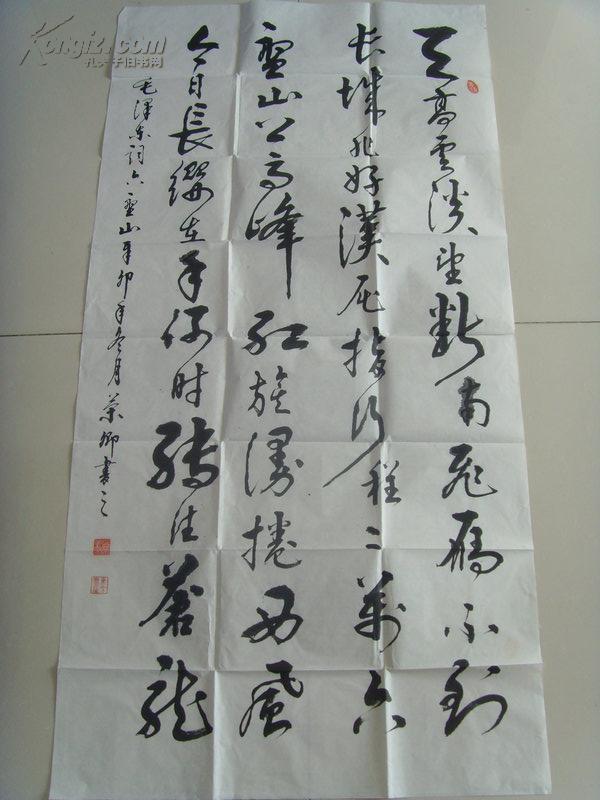 天高雲淡望斷南飛雁不到
长城非好漢屈指行程二萬六
盤山上高峰紅旗漫捲西風
今日長纓在手何时縛住蒼龍
毛澤东词六盤山辛卯年冬月榮卿書之
Kongfz.com
孔夫子旧书网